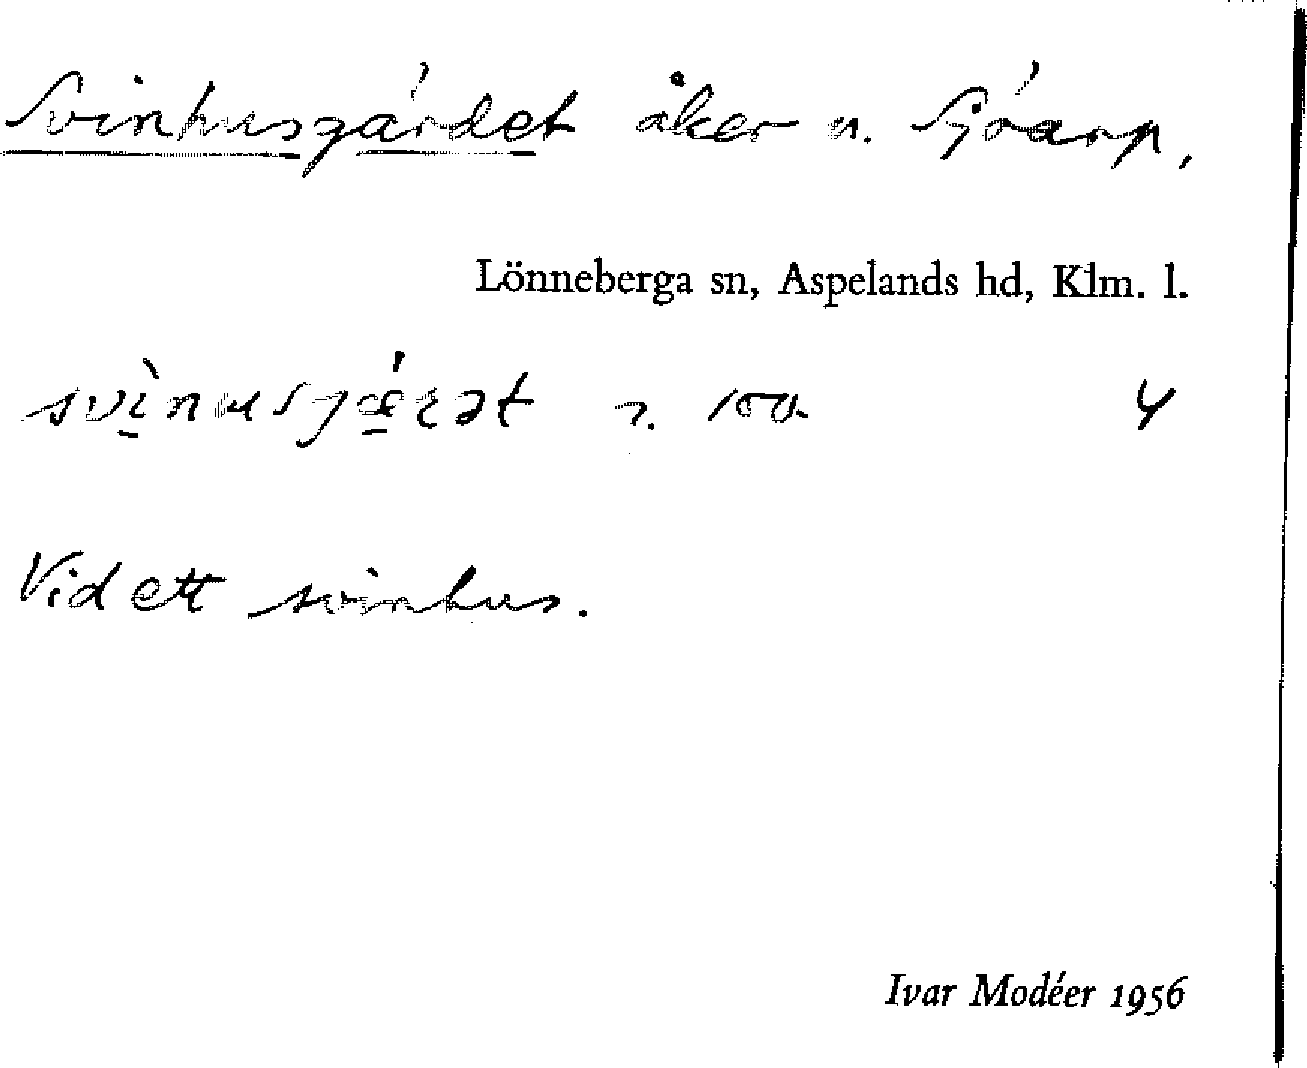 Svinhusgärdet åker n. Sjöarp,
Lönneberga sn, Aspelands hd, Klm. l.
svì̱nusjǽ̱rət n. 100 4
Vid ett svinhus.
Ivar Modéer 1956